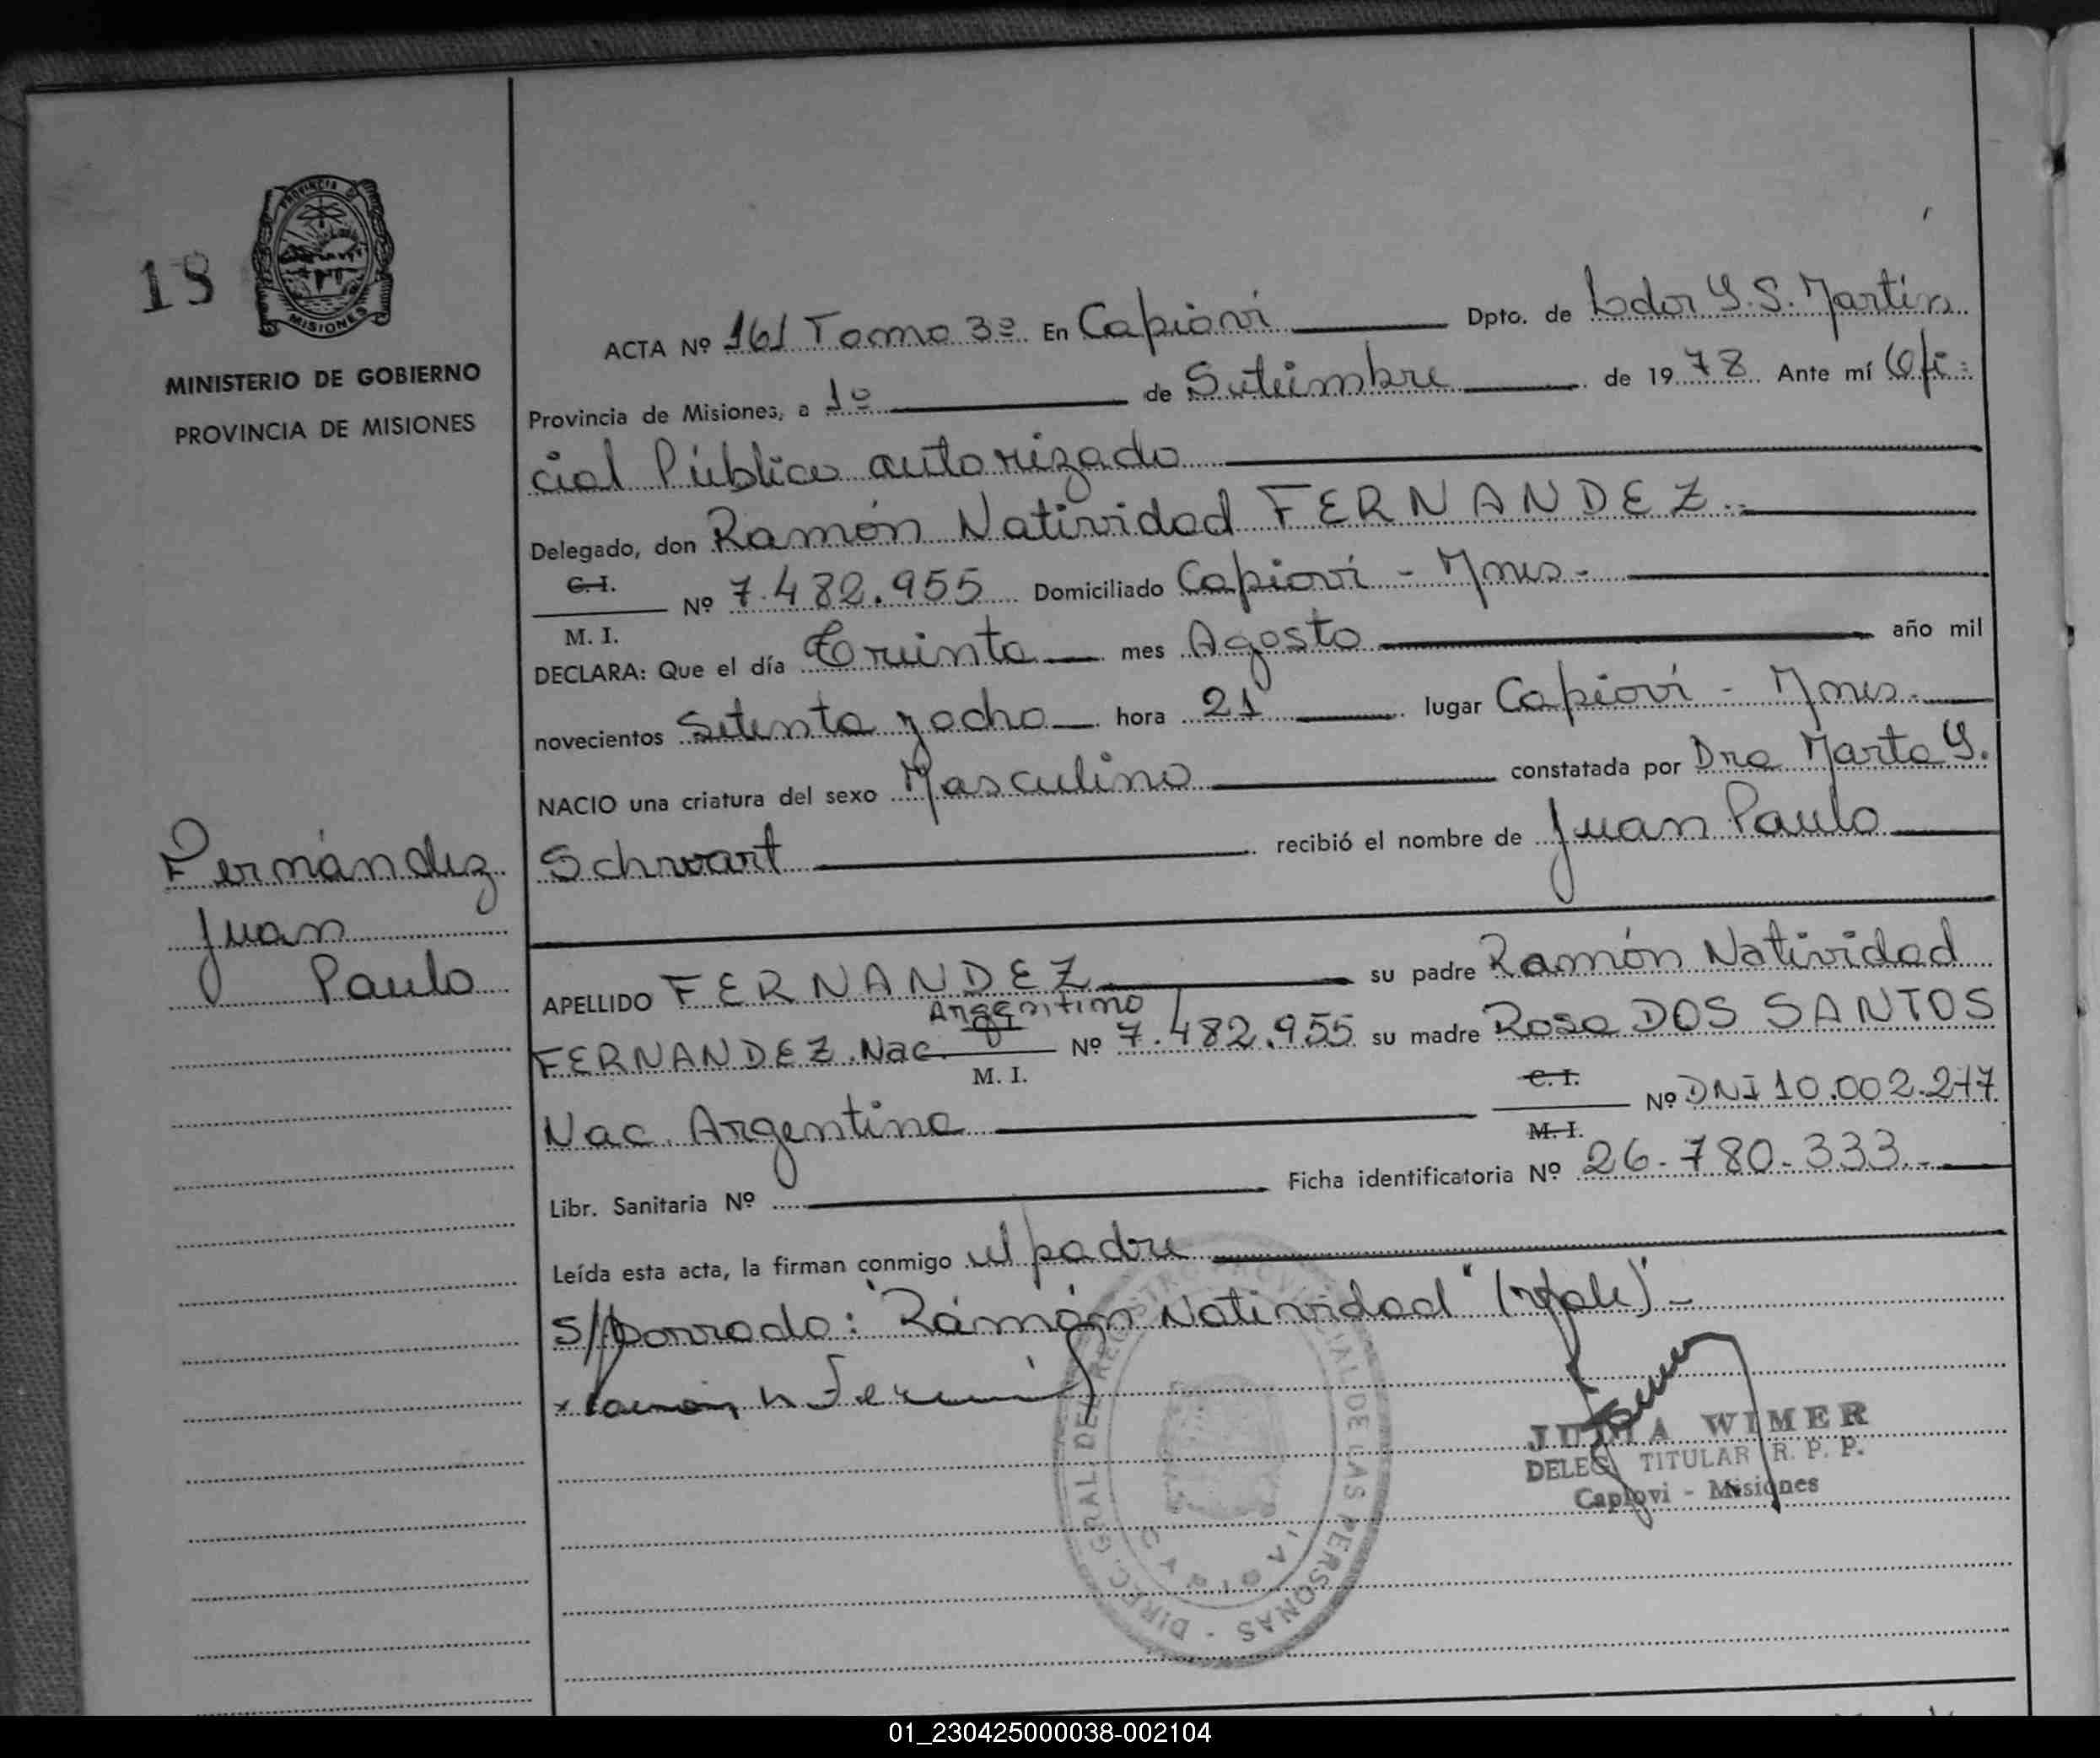 18
PROVINCIA DE
MISIONES
MINISTERIO DE GOBIERNO
PROVINCIA DE MISIONES
Fernández
Juan
Paulo
ACTA Nº 161 Tomo 3º En Capioví Dpto. de Ldor G. S. Martín
Provincia de Misiones, a 1º de Setiembre de 1978 Ante mí Ofi-
cial Público autorizado
Delegado, don Ramón Natividad FERNANDEZ.-
C. I.
Nº 7.482.955 Domiciliado Capioví - Mnes-
M. I.
DECLARA: Que el día Treinta mes Agosto año mil
novecientos Setenta y ocho hora 21 lugar Capioví - Mnes.
NACIO una criatura del sexo Masculino constatada por Dra Marta G.
Schwart recibió el nombre de Juan Paulo
APELLIDO FERNANDEZ su padre Ramón Natividad
Argentino
FERNANDEZ. Nac. Nº 7.482.955 su madre Rosa DOS SANTOS
M. I.
C. I.
Nac. Argentina Nº DNI 10.002.277
M. I.
Libr. Sanitaria Nº Ficha identificatoria Nº 26-780-333.-
Leída esta acta, la firman conmigo el padre
S/borrado: "Ramón Natividad" (Vale)-
JULIA WIMER
DELEG. TITULAR R. P. P.
Capiovi - Misiones
DIREC. GRAL. DEL REGISTRO PROVINCIAL DE LAS PERSONAS -
CAPIOVI
01_230425000038-002104